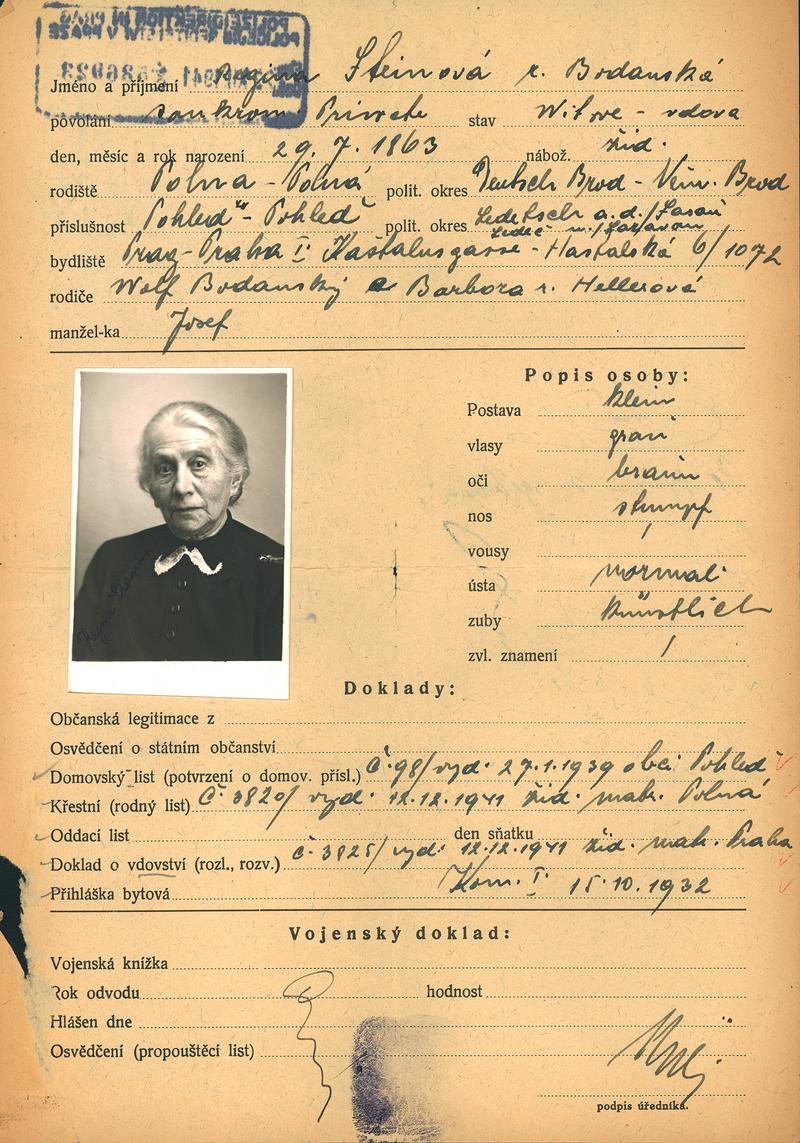 Jméno a příjmení Regina Steinová r. Bodanská
povolání soukrom Private stav Witwe - vdova
den, měsíc a rok narození 29. 7. 1863 nábož. žid.
rodiště Polna - Polná polit. okres Deutsch Brod - Něm. Brod
příslušnost Pohleď - Pohleď polit. okres Ledetsch a.d./Sasau
Ledeč n./Sázavou
bydliště Prag - Praha I. Kastalusgasse - Hastalská 6/1072
rodiče Wolf Bodanský a Barbora r. Hellerová
manžel-ka Josef
Popis osoby:
Postava klein
vlasy grau
oči braun
nos stumpf
vousy /
ústa normal
zuby künstlich
zvl. znamení /
Doklady:
Občanská legitimace z
Osvědčení o státním občanství
Domovský list (potvrzení o domov. přísl.) č. 98/ vyd. 27.1.1939 obcí Pohleď
Křestní (rodný list) č. 3820/ vyd. 12.12.1941 žid. matr. Polná
Oddací list den sňatku
Doklad o vdovství (rozl., rozv.) č. 3825/ vyd. 12.12.1941 žid. matr. Praha
Přihláška bytová Kom. I. 15.10.1932
Vojenský doklad:
Vojenská knížka
Rok odvodu hodnost
Hlášen dne
Osvědčení (propouštěcí list)
podpis úředníka.